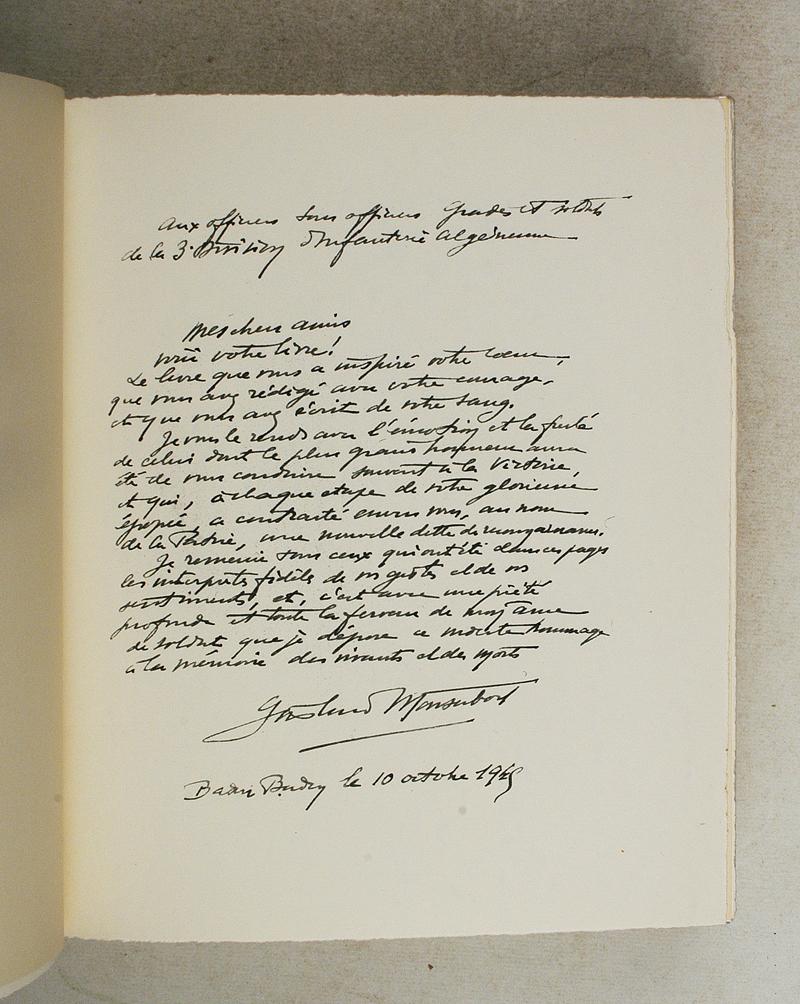 Aux officiers sous officiers Gradés et soldats
de la 3e Division d'Infanterie Algérienne
Mes chers amis
voici votre livre!
Le livre que vous a inspiré votre cœur,
que vous avez rédigé avec votre courage,
et que vous avez écrit de votre sang.
Je vous le rends avec l'émotion et la fierté
de celui dont le plus grand honneur aura
été de vous conduire souvent à la Victoire,
et qui, à chaque étape de votre glorieuse
épopée, a contracté envers vous, au nom
de la Patrie, une nouvelle dette de reconnaissance.
Je remercie tous ceux qui ont été dans ces pages
les interprètes fidèles de vos gestes et de vos
sentiments, et, c'est avec une piété
profonde et toute la ferveur de mon âme
de soldat que je dépose ce modeste hommage
à la mémoire des vivants et des morts
Goislard Monsabert
Baden Baden le 10 octobre 1945